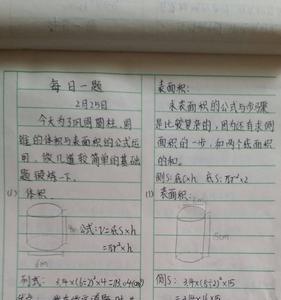 每日一题
2月25日
今天为了巩固圆柱、圆
锥的体积与表面积的公式运
用,做几道较简单的基础
题锻炼一下。
(1) 体积
公式:V=底S×h
=πr²×h
4cm
6cm
列式: 3.14×(6÷2)²×4=113.04(cm³)
表面积:
求表面积的公式与步骤
是比较复杂的,因为还有求侧
面积的一步,和两个底面积
的和。
侧S:底C×h 底S:πr²×2
(1) 表面积:
15cm
侧S: 3.14×(8÷2)²×15
=3.14×16×15